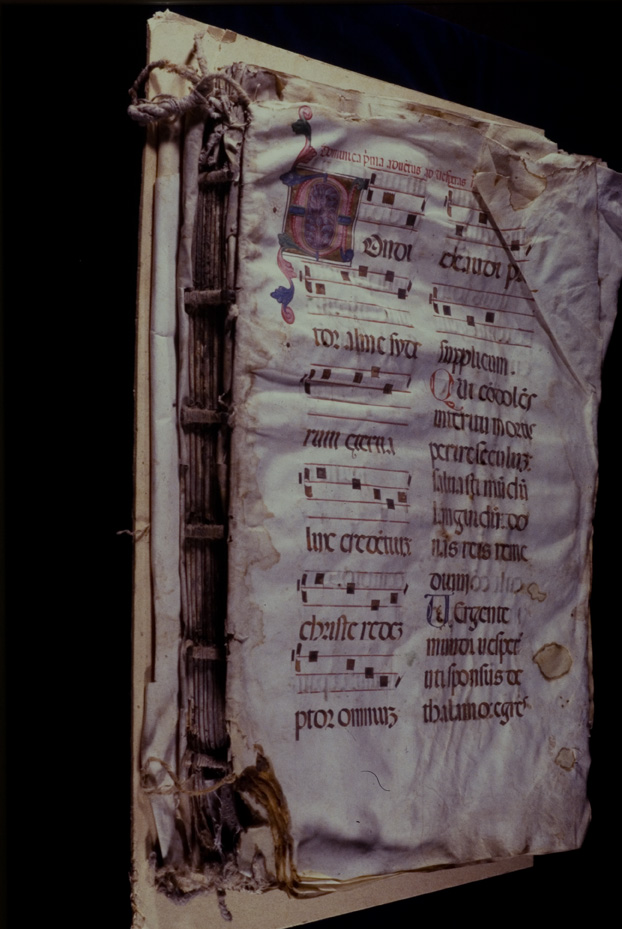 Dominica p̄ma aduētus ad uesperas
Ondi
tor alme syde
rum eterna
lux credētiuȝ
christe redeȝ
ptor omniuȝ
exaudi p
supplicum.
Qui cōdolēs
interitu mortis
perire seculuȝ
saluasti mūdū
languidū do
nās reis reme
dium
Uergente
mundi uespe
uti sponsus de
thalamo egres